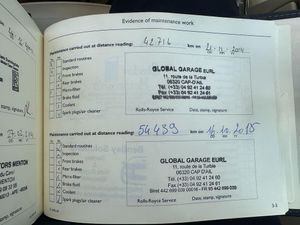 Evidence of maintenance work
Maintenance carried out at distance reading:
42714 km
Standard routines
Inspection
Front brakes
Rear brakes
Micro-filter
Brake fluid
Coolant
Spark plugs/air cleaner
GLOBAL GARAGE EURL
11, route de la Turbie
06320 CAP-D'AIL
Tél. (+33) 04 92 41 24 60
Fax (+33) 04 92 41 24 61
Rolls-Royce Service
Date, stamp, signature
Maintenance carried out at distance reading:
54439 km 16.12.2015
Standard routines
Inspection
Front brakes
Rear brakes
Micro-filter
Brake fluid
Coolant
Spark plugs/air cleaner
GLOBAL GARAGE EURL
11, route de la Turbie
06320 CAP-D'AIL
Tél. (+33) 04 92 41 24 60
Fax (+33) 04 92 41 24 61
Rolls-Royce Service
Date, stamp, signature
stamp, signature
TORS MENTON